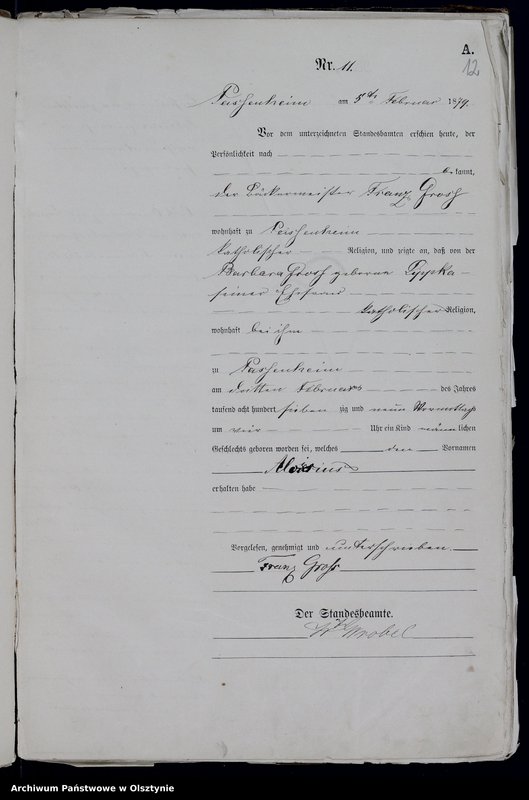 A.
12
Nr. 11.
Passenheim am 5ten Februar 1879.
Vor dem unterzeichneten Standesbeamten erschien heute, der
Persönlichkeit nach
bekannt,
der Bäckermeister Franz Grosz
wohnhaft zu Passenheim
katholischer Religion, und zeigte an, daß von der
Barbara Grosz geborene Lypka
seiner Ehefrau
katholischer Religion,
wohnhaft bei ihm
zu Passenheim
am dritten Februar des Jahres
tausend acht hundert sieben zig und neun Vormittags
um vier Uhr ein Kind männlichen
Geschlechts geboren worden sei, welches den Vornamen
Aloisius
erhalten habe
Vorgelesen, genehmigt und unterschrieben.
Franz Grosz
Der Standesbeamte.
Wrobel
Archiwum Państwowe w Olsztynie